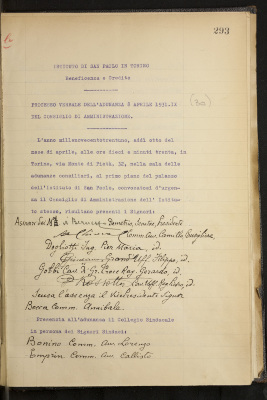 293
ISTITUTO DI SAN PAOLO IN TORINO
Beneficenza e Credito
PROCESSO VERBALE DELL'ADUNANZA 8 APRILE 1931.IX
(20)
DEL CONSIGLIO DI AMMINISTRAZIONE.
L'anno millenovecentotrentuno, addì otto del
mese di aprile, alle ore dieci e minuti trenta, in
Torino, via Monte di Pietà, 32, nella sala delle
adunanze consiliari, al primo piano del palazzo
dell'Istituto di San Paolo, convocatosi d'urgen-
za il Consiglio di Amministrazione dell'Istitu-
to stesso, risultano presenti i Signori:
Demetrio, Senatore, Presidente
Comm. Avv. Camillo
Dogliotti Ing. Pier Maria, id.
Uff. Filippo, id.
Gobbi Cav. Rag. Gerardo, id.
id.
Scusa l'assenza il Vicepresidente Signor
Bocca Comm. Annibale.
Presenzia all'adunanza il Collegio Sindacale
in persona dei Signori Sindaci:
Bonino Comm. Avv. Lorenzo
Comm. Avv. Callisto